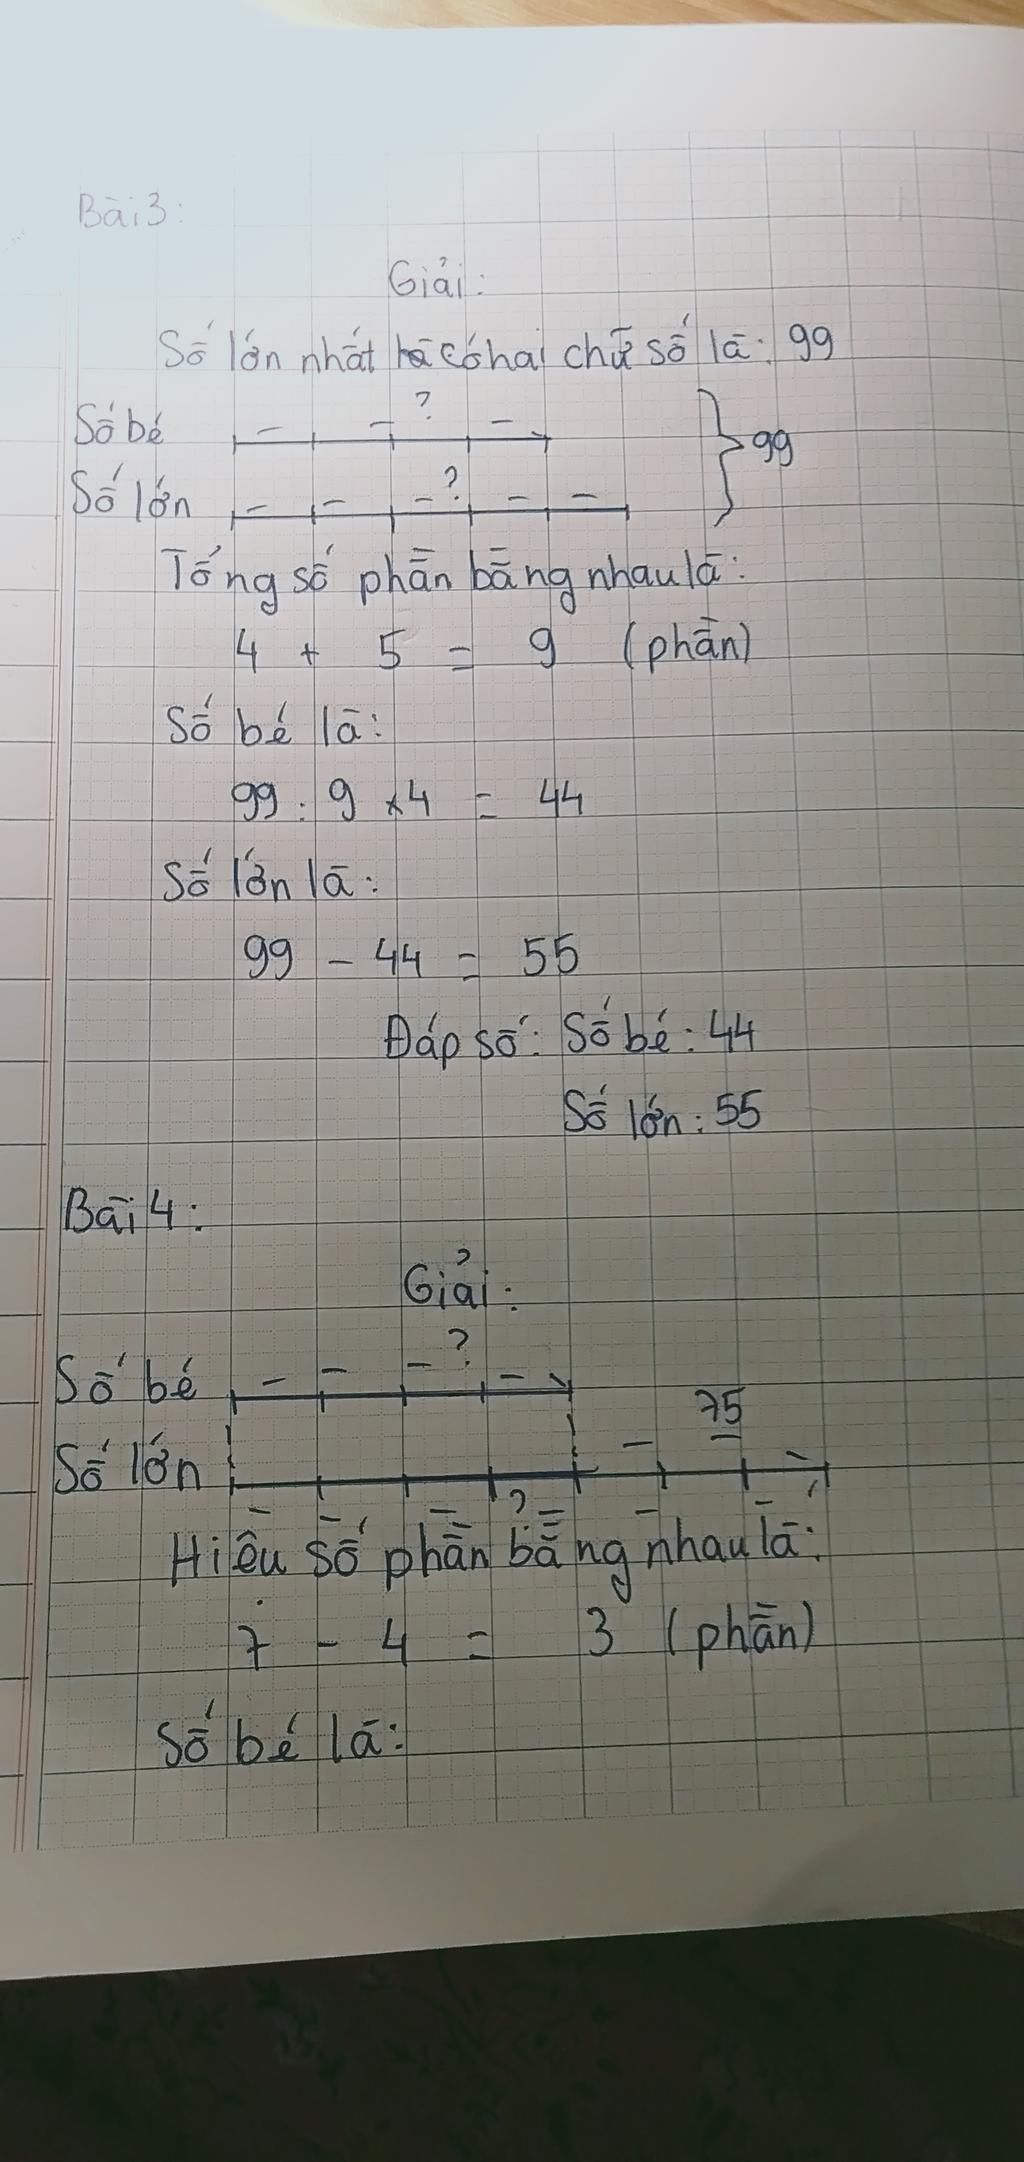 Bài 3:
Giải:
Số lớn nhất có hai chữ số là: 99
Số bé ?
Số lớn ? 99
Tổng số phần bằng nhau là:
4 + 5 = 9 (phần)
Số bé là:
99 : 9 x 4 = 44
Số lớn là:
99 - 44 = 55
Đáp số: Số bé: 44
Số lớn: 55
Bài 4:
Giải:
Số bé ?
75
Số lớn
?
Hiệu số phần bằng nhau là:
7 - 4 = 3 (phần)
Số bé là: